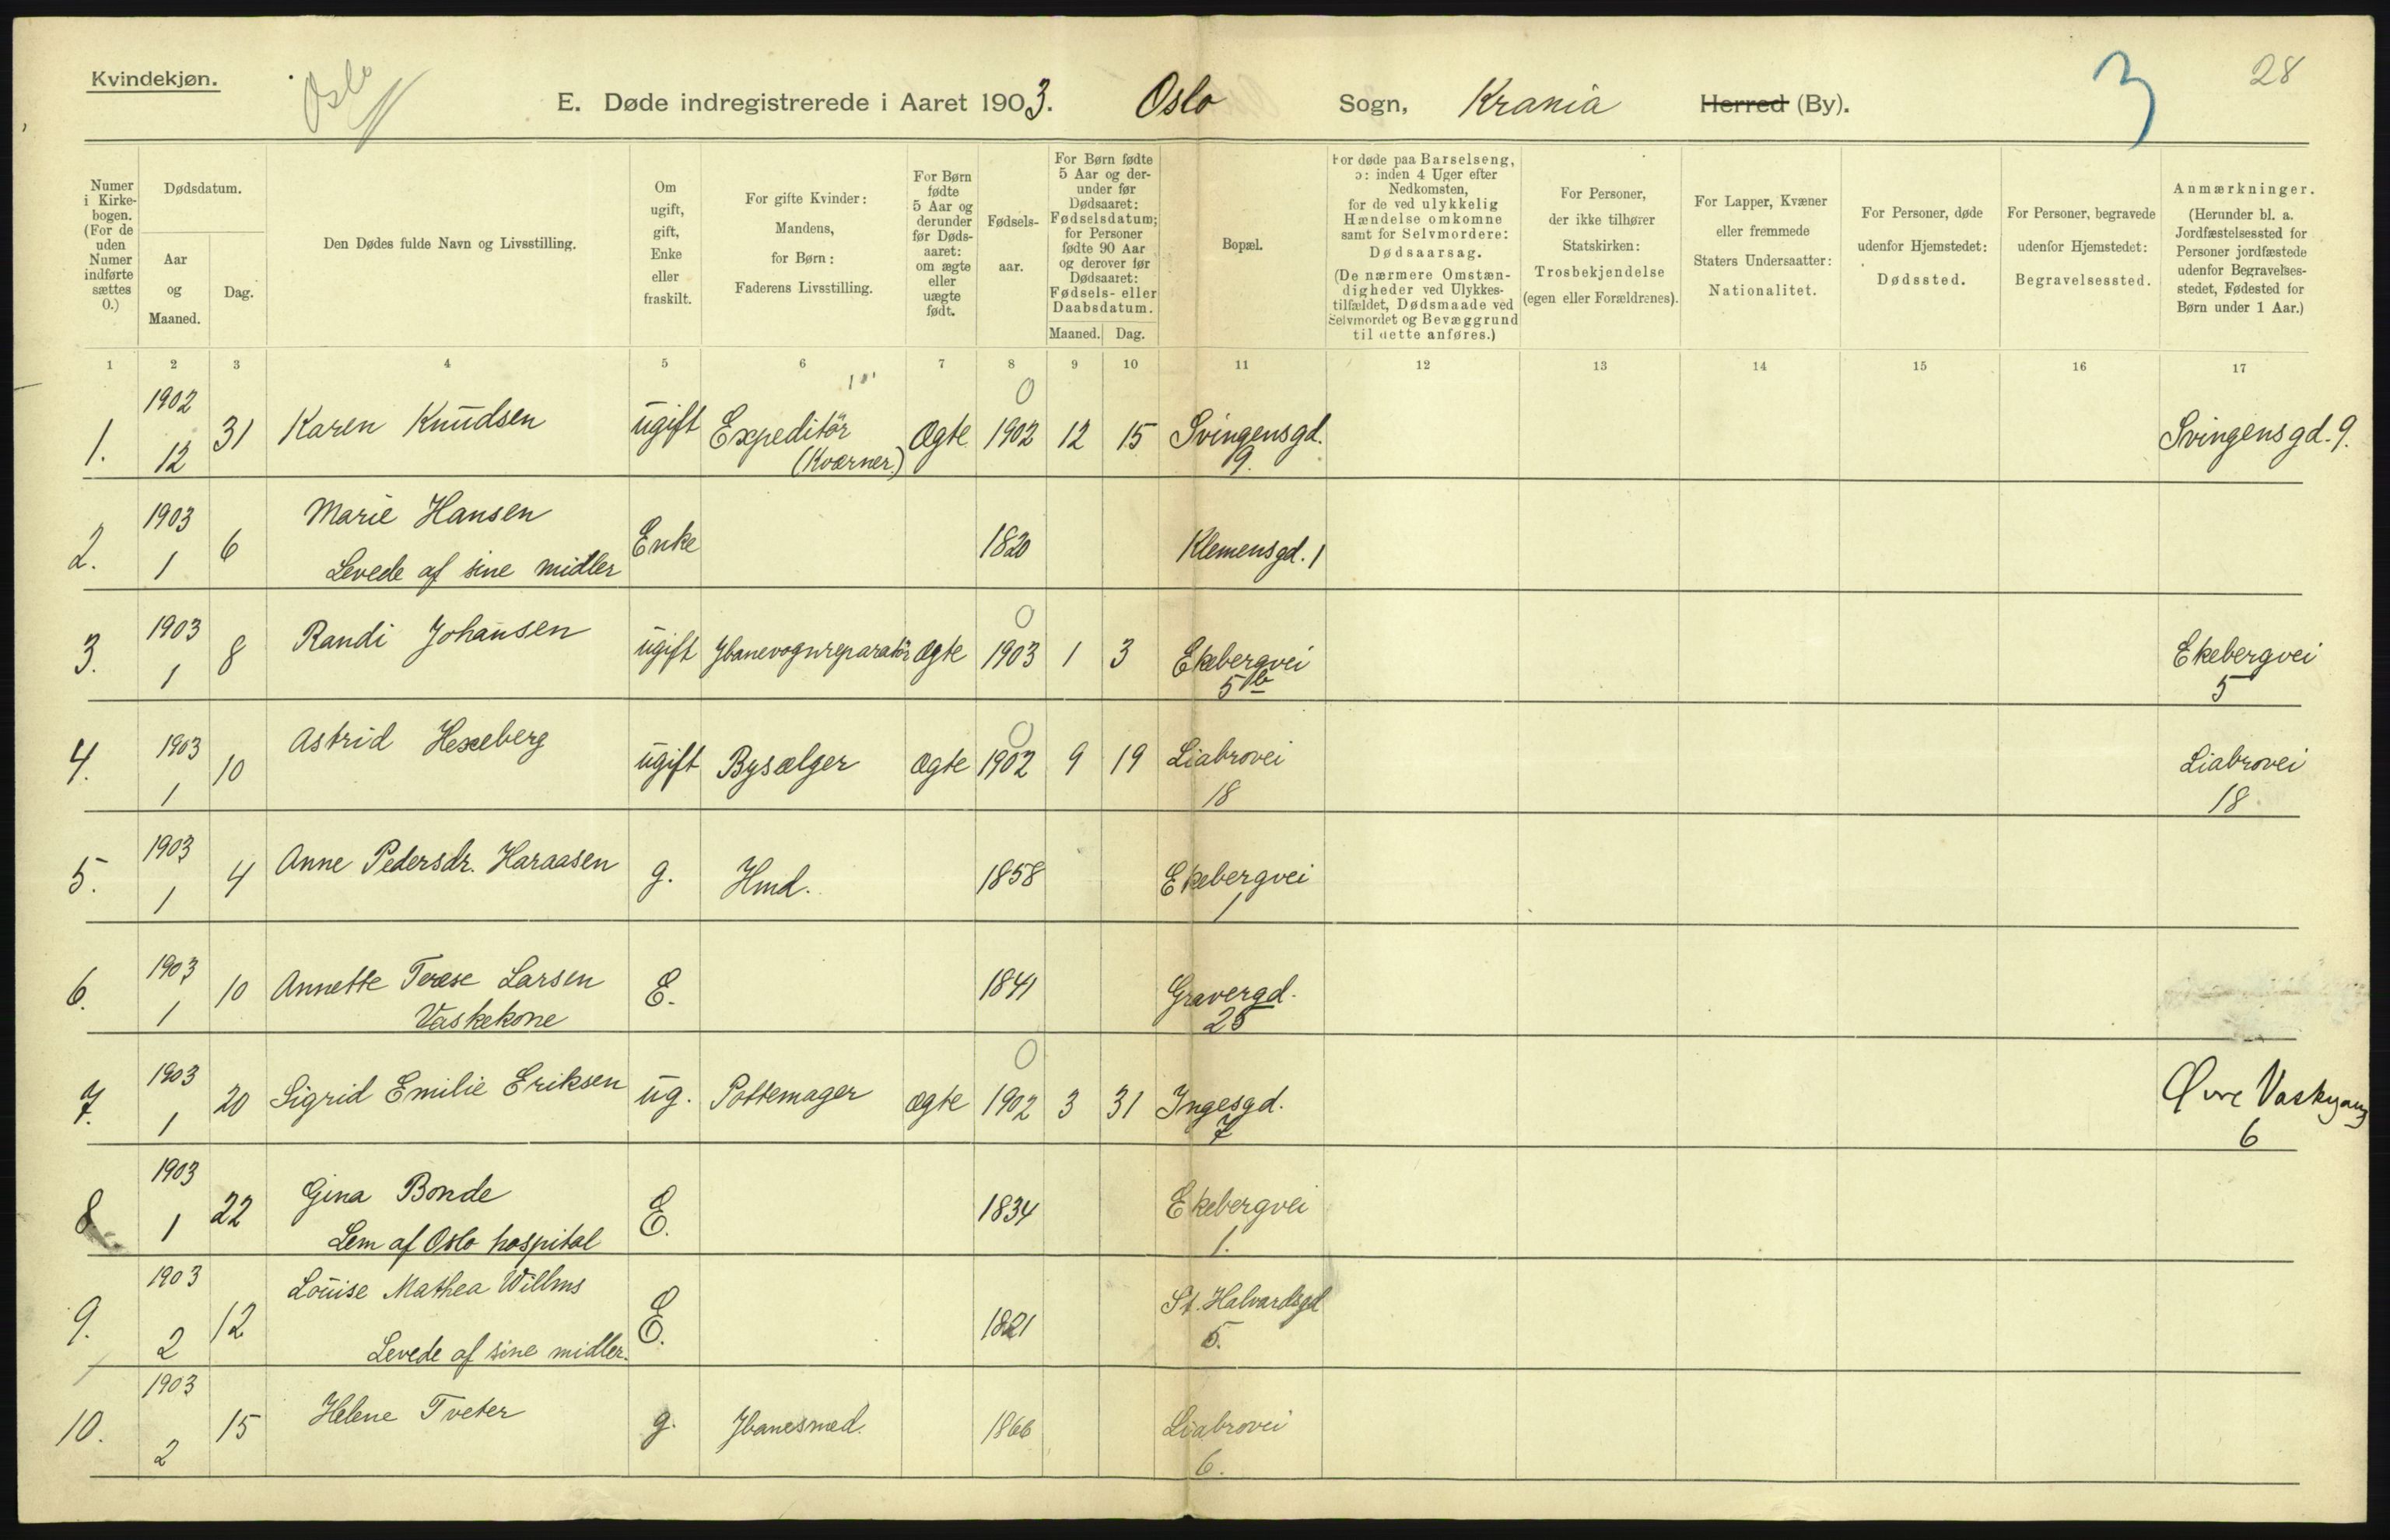 Kvindekjøn.
Oslo
E. Døde indregistrerede i Aaret 1903. Oslo Sogn, Krania Herred (By).
3
28
Numer i Kirke-bogen. (For de uden Numer indførte sættes 0.)
Dødsdatum.
Aar og Maaned.
Dag.
Den Dødes fulde Navn og Livsstilling.
Om ugift, gift, Enke eller fraskilt.
For gifte Kvinder: Mandens, for Børn: Faderens Livsstilling.
For Børn fødte 5 Aar og derunder før Døds-aaret: om ægte eller uægte født.
Fødsels-aar.
For Børn fødte 5 Aar og der-under før Dødsaaret: Fødselsdatum; for Personer fødte 90 Aar og derover før Dødsaaret: Fødsels- eller Daabsdatum.
Maaned. Dag.
Bopæl.
For døde paa Barselseng, ɔ: inden 4 Uger efter Nedkomsten, for de ved ulykkelig Hændelse omkomne samt for Selvmordere: Dødsaarsag. (De nærmere Omstæn-digheder ved Ulykkes-tilfældet, Dødsmaade ved Selvmordet og Bevæggrund til dette anføres.)
For Personer, der ikke tilhører Statskirken: Trosbekjendelse (egen eller Forældrenes).
For Lapper, Kvæner eller fremmede Staters Undersaatter: Nationalitet.
For Personer, døde udenfor Hjemstedet: Dødssted.
For Personer, begravede udenfor Hjemstedet: Begravelsessted.
Anmærkninger. (Herunder bl. a. Jordfæstelsessted for Personer jordfæstede udenfor Begravelses-stedet, Fødested for Børn under 1 Aar.)
1 2 3 4 5 6 7 8 9 10 11 12 13 14 15 16 17
1. 1902 12 31 Karen Knudsen ugift Expeditör (Kværner.) Ægte 0 1902 12 15 Svingensgd. 9. Svingensgd. 9.
2. 1903 1 6 Marie Hansen Enke 1820 Klemensgd. 1
Levede af sine midler
3. 1903 1 8 Randi Johansen ugift Jbanevognreparatör Ægte 0 1903 1 3 Ekebergvei 5b Ekebergvei 5
4. 1903 1 10 Astrid Hexeberg ugift Bysælger Ægte 0 1902 9 19 Liabrovei 18 Liabrovei 18
5. 1903 1 4 Anne Pedersdr. Haraasen g. Hmd. 1858 Ekebergvei 1
6. 1903 1 10 Annette Terese Larsen E. 1841 Gravergd. 25
Vaskekone
7. 1903 1 20 Sigrid Emilie Eriksen ug. Pottemager ægte 0 1902 3 31 Ingesgd. 7 Øvre Vaskegang 6
8. 1903 1 22 Gina Bonde E. 1834 Ekebergvei 1.
Lem af Oslo hospital
9. 1903 2 12 Louise Mathea Willms E. 1821 St. Halvardsgd 5.
Levede af sine midler.
10. 1903 2 15 Helene Tveter g. Jbanesmed. 1866 Liabrovei 6.